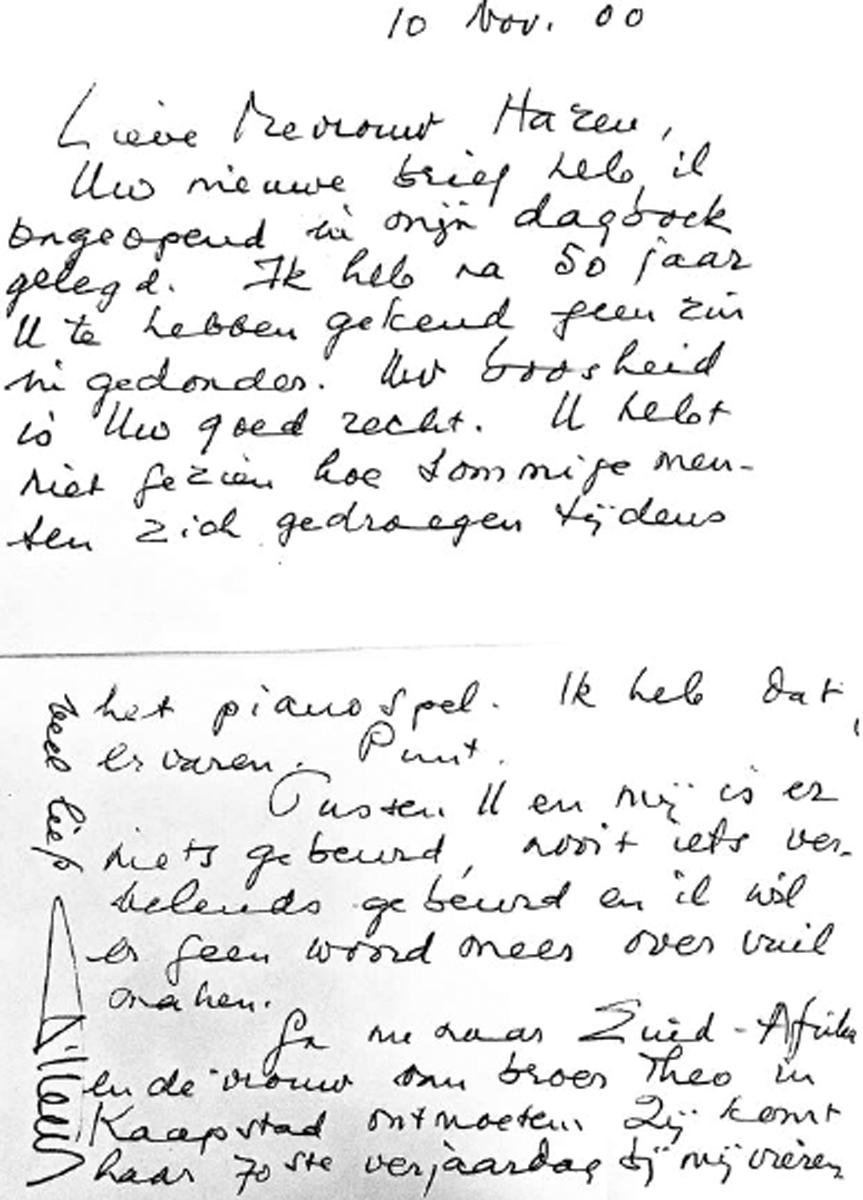 10 Nov. 00
Lieve Mevrouw Hazeu,
Uw nieuwe brief heb ik
ongeopend in mijn dagboek
gelegd. Ik heb na 50 jaar
U te hebben gekend geen zin
in gedonder. Uw boosheid
is Uw goed recht. U hebt
niet gezien hoe sommige men-
sen zich gedroegen tijdens
het pianospel. Ik heb dat
ervaren. Punt.
Tussen U en mij is er
niets gebeurd, nooit iets ver-
velends gebeurd en ik wil
er geen woord meer over vuil
maken.
Ga nu naar Zuid-Afrika
en de vrouw van broer Theo in
Kaapstad ontmoeten. Zij komt
haar 70ste verjaardag bij mij vieren
veel liefs
Willem